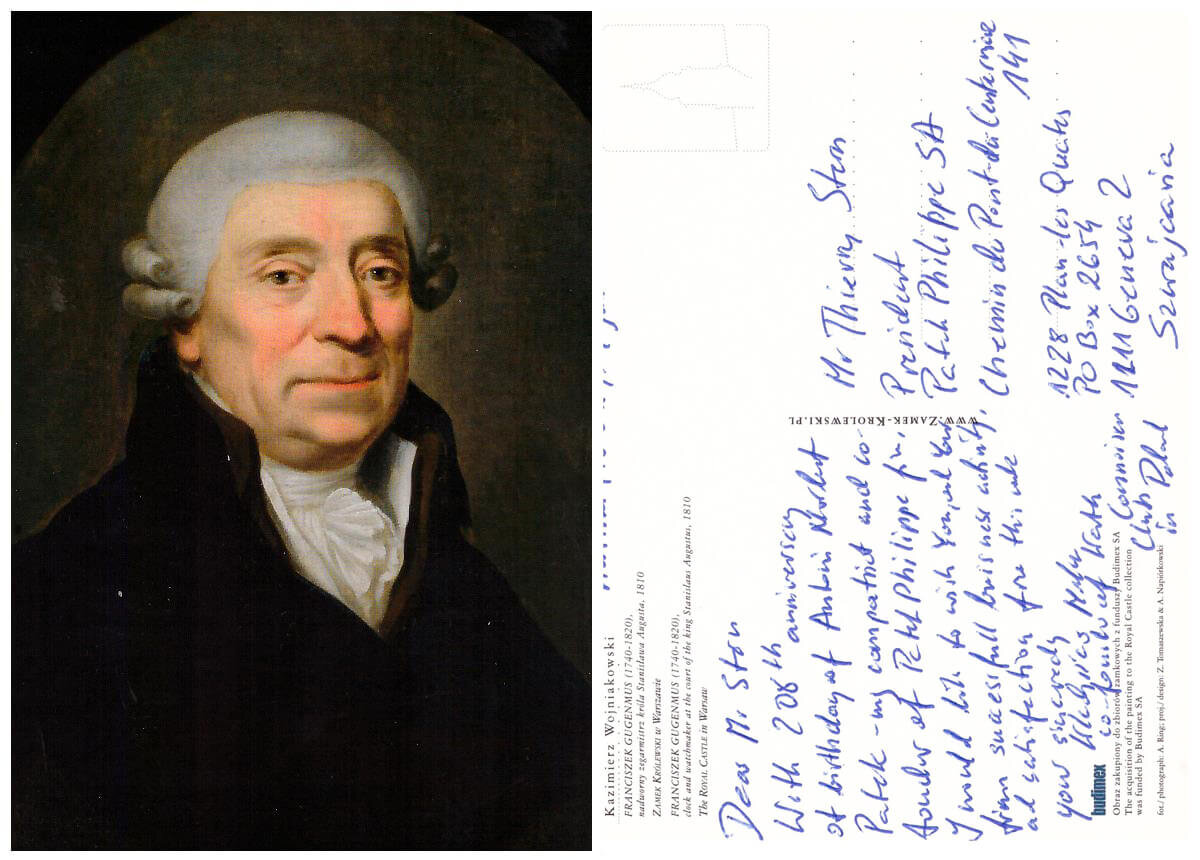 Kazimierz Wojniakowski
FRANCISZEK GUGENMUS (1740-1820),
nadworny zegarmistrz króla Stanisława Augusta, 1810
ZAMEK KRÓLEWSKI w Warszawie
FRANCISZEK GUGENMUS (1740-1820),
clock and watchmaker at the court of the king Stanislaus Augustus, 1810
The ROYAL CASTLE in Warsaw
Dear Mr Stern
With 208 th anniversary
of birthday of Antoni Norbert
Patek - my compatriot and co-
founder of Patek Philippe firm,
I would like to wish You, and Your
firm successfull business activity,
ad satisfaction fre this
your sincerely
co-founder of Watch
Connoisseur
Club Poland
in
WWW.ZAMEK-KROLEWSKI.PL
Mr Thierry Stern
President
Patek Philippe SA
Chemin du Pont-du Centenaire
141
1228 Plan-les Ouates
PO Box 2654
1211 Geneva 2
Szwajcaria
budimex
Obraz zakupiony do zbiorów zamkowych z funduszy Budimex SA
The acquisition of the painting to the Royal Castle collection
was funded by Budimex SA
fot./ photograph: A. Ring; proj./ design: Z. Tomaszewska & A. Napiórkowski